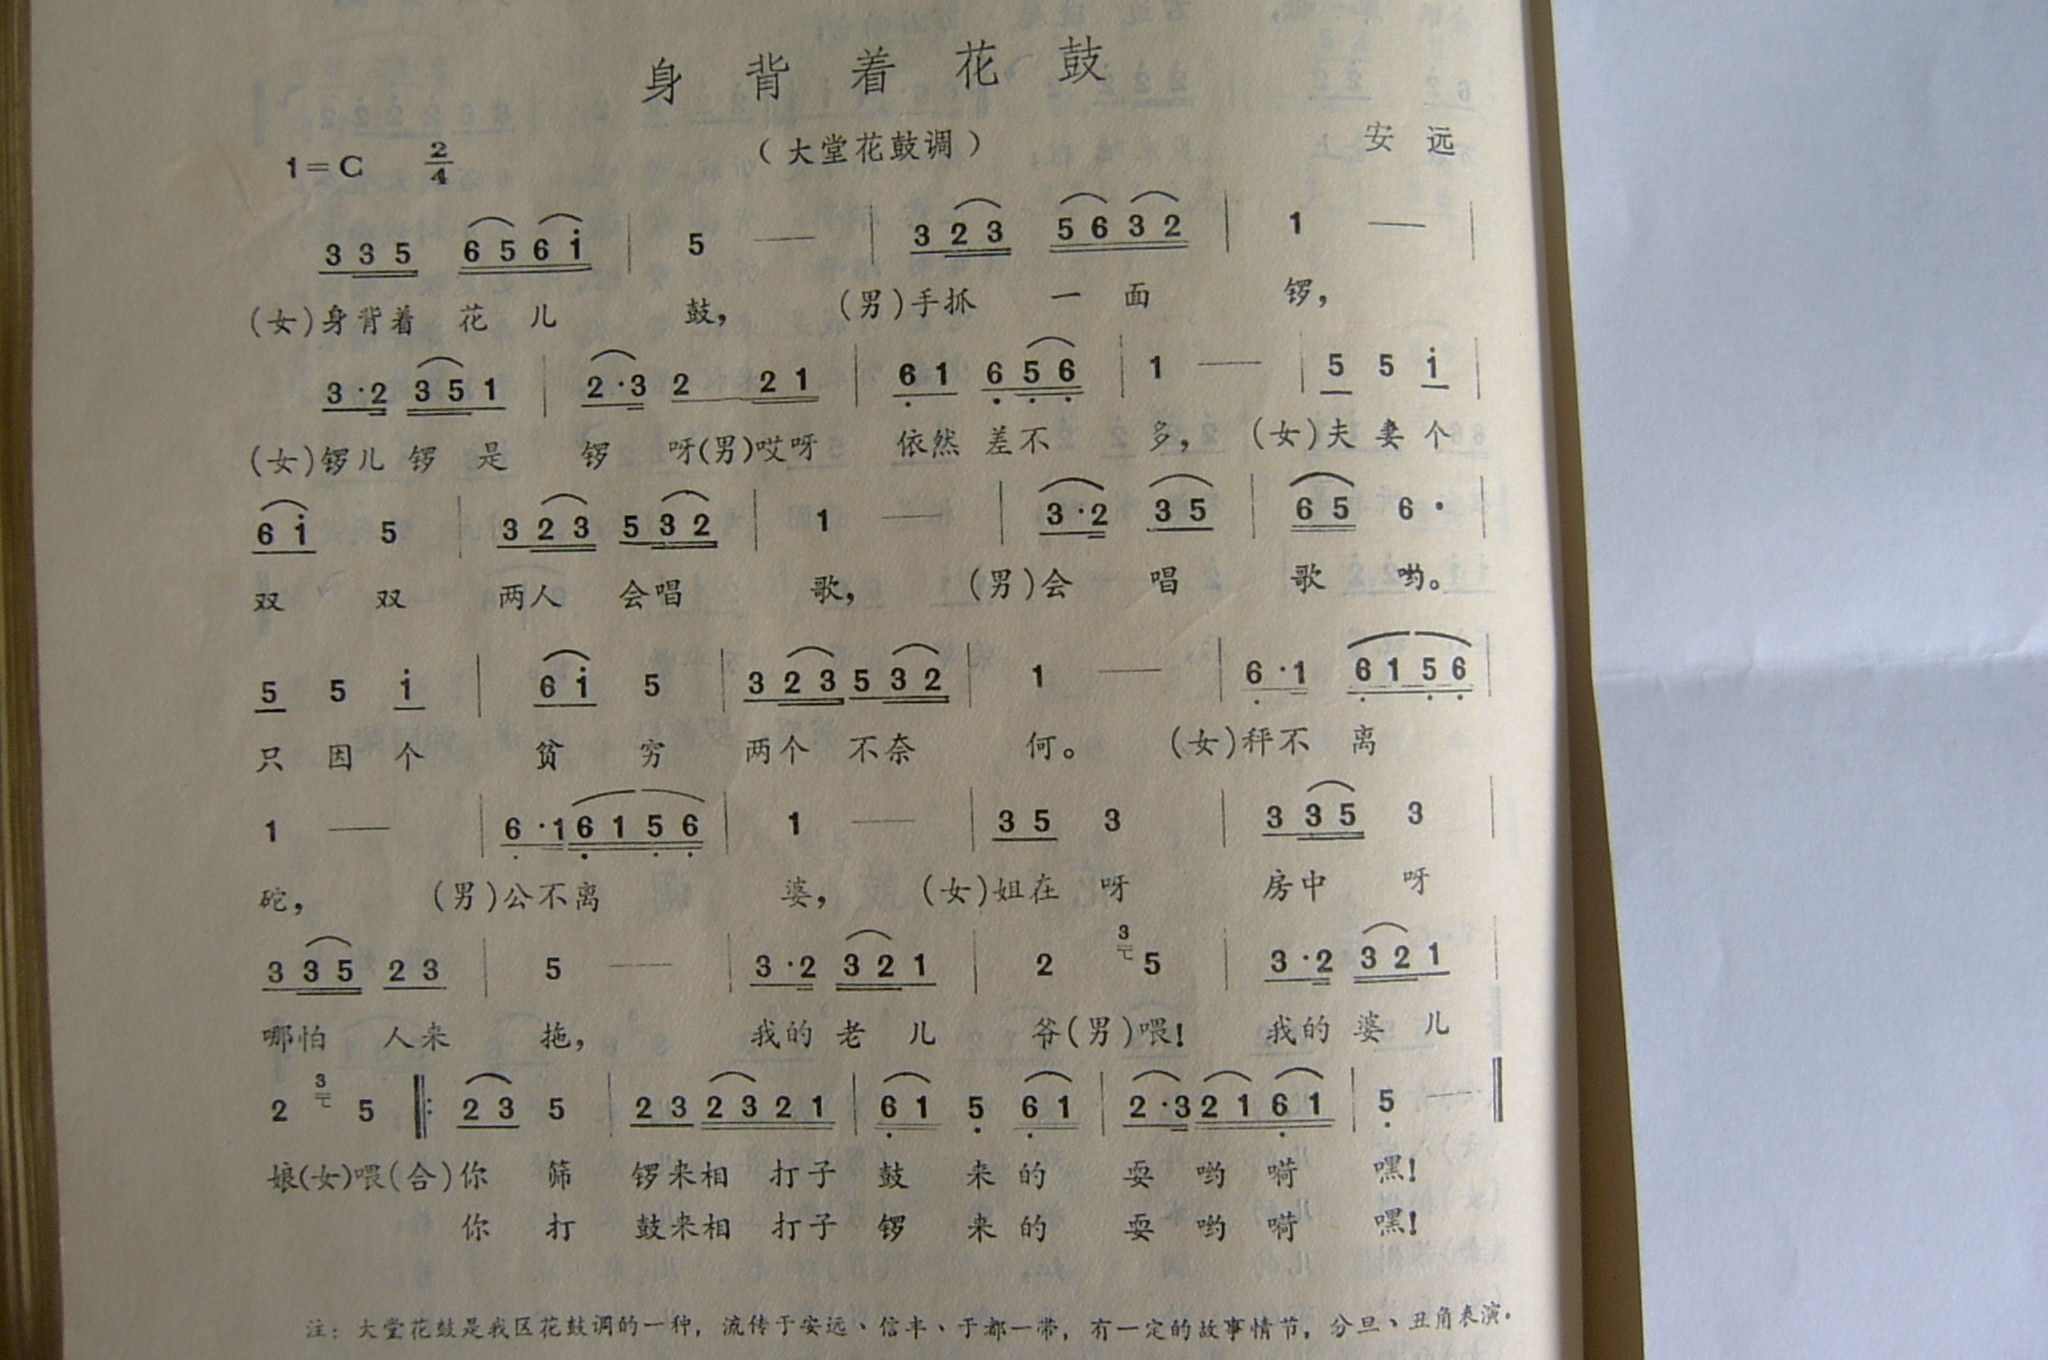 身背着花鼓
（大堂花鼓调）
安远
1=C 2/4
3 3 5 6 5 6 i | 5 — | 3 2 3 5 6 3 2 | 1 — |
（女）身背着 花 儿 鼓， （男）手抓 一 面 锣，
3·2 3 5 1 | 2·3 2 2 1 | 6 1 6 5 6 | 1 — | 5 5 i |
（女）锣儿 锣 是 锣 呀（男）哎呀 依然 差不 多，（女）夫 妻 个
6 i 5 | 3 2 3 5 3 2 | 1 — | 3·2 3 5 | 6 5 6· |
双 双 两人 会唱 歌，（男）会 唱 歌 哟。
5 5 i | 6 i 5 | 3 2 3 5 3 2 | 1 — | 6·1 6 1 5 6 |
只 因 个 贫 穷 两个 不奈 何。（女）秤不 离
1 — | 6·1 6 1 5 6 | 1 — | 3 5 3 | 3 3 5 3 |
砣，（男）公不离 婆，（女）姐在 呀 房中 呀
3 3 5 2 3 | 5 — | 3·2 3 2 1 | 2 3 5 | 3·2 3 2 1 |
哪怕 人来 拖， 我的 老 儿 爷（男）喂！ 我的 婆 儿
2 3 5 ‖: 2 3 5 | 2 3 2 3 2 1 | 6 1 5 6 1 | 2·3 2 1 6 1 | 5 — ‖
娘（女）喂（合）你 筛 锣来相 打子 鼓 来的 耍 哟 嗬 嘿！
你 打 鼓来相 打子 锣 来的 耍 哟 嗬 嘿！
注：大堂花鼓是我区花鼓调的一种，流传于安远、信丰、于都一带，有一定的故事情节，分旦、丑角表演。